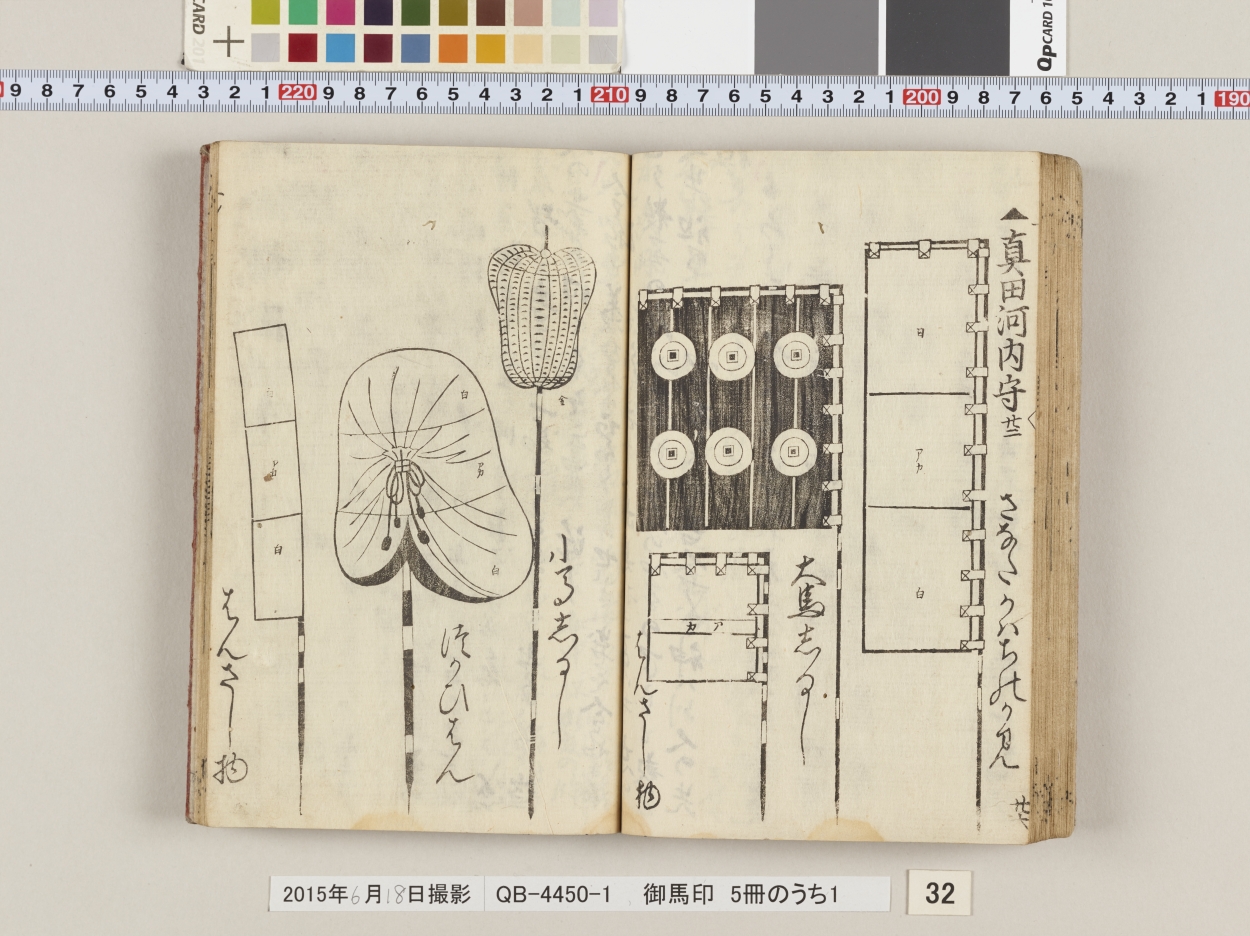 CARD 201
QPCARD 10
9 8 7 6 5 4 3 2 1 220 9 8 7 6 5 4 3 2 1 210 9 8 7 6 5 4 3 2 1 200 9 8 7 6 5 4 3 2 1 190
真田河内守 廿二
さなたかはちのかみ
白
アカ
白
大馬志るし
アカ
はんさし物
廿六
小馬志るし
金
つかひはん
白
アカ
白
白
はんさし物
2015年6月18日撮影 QB-4450-1 御馬印 5冊のうち1
32